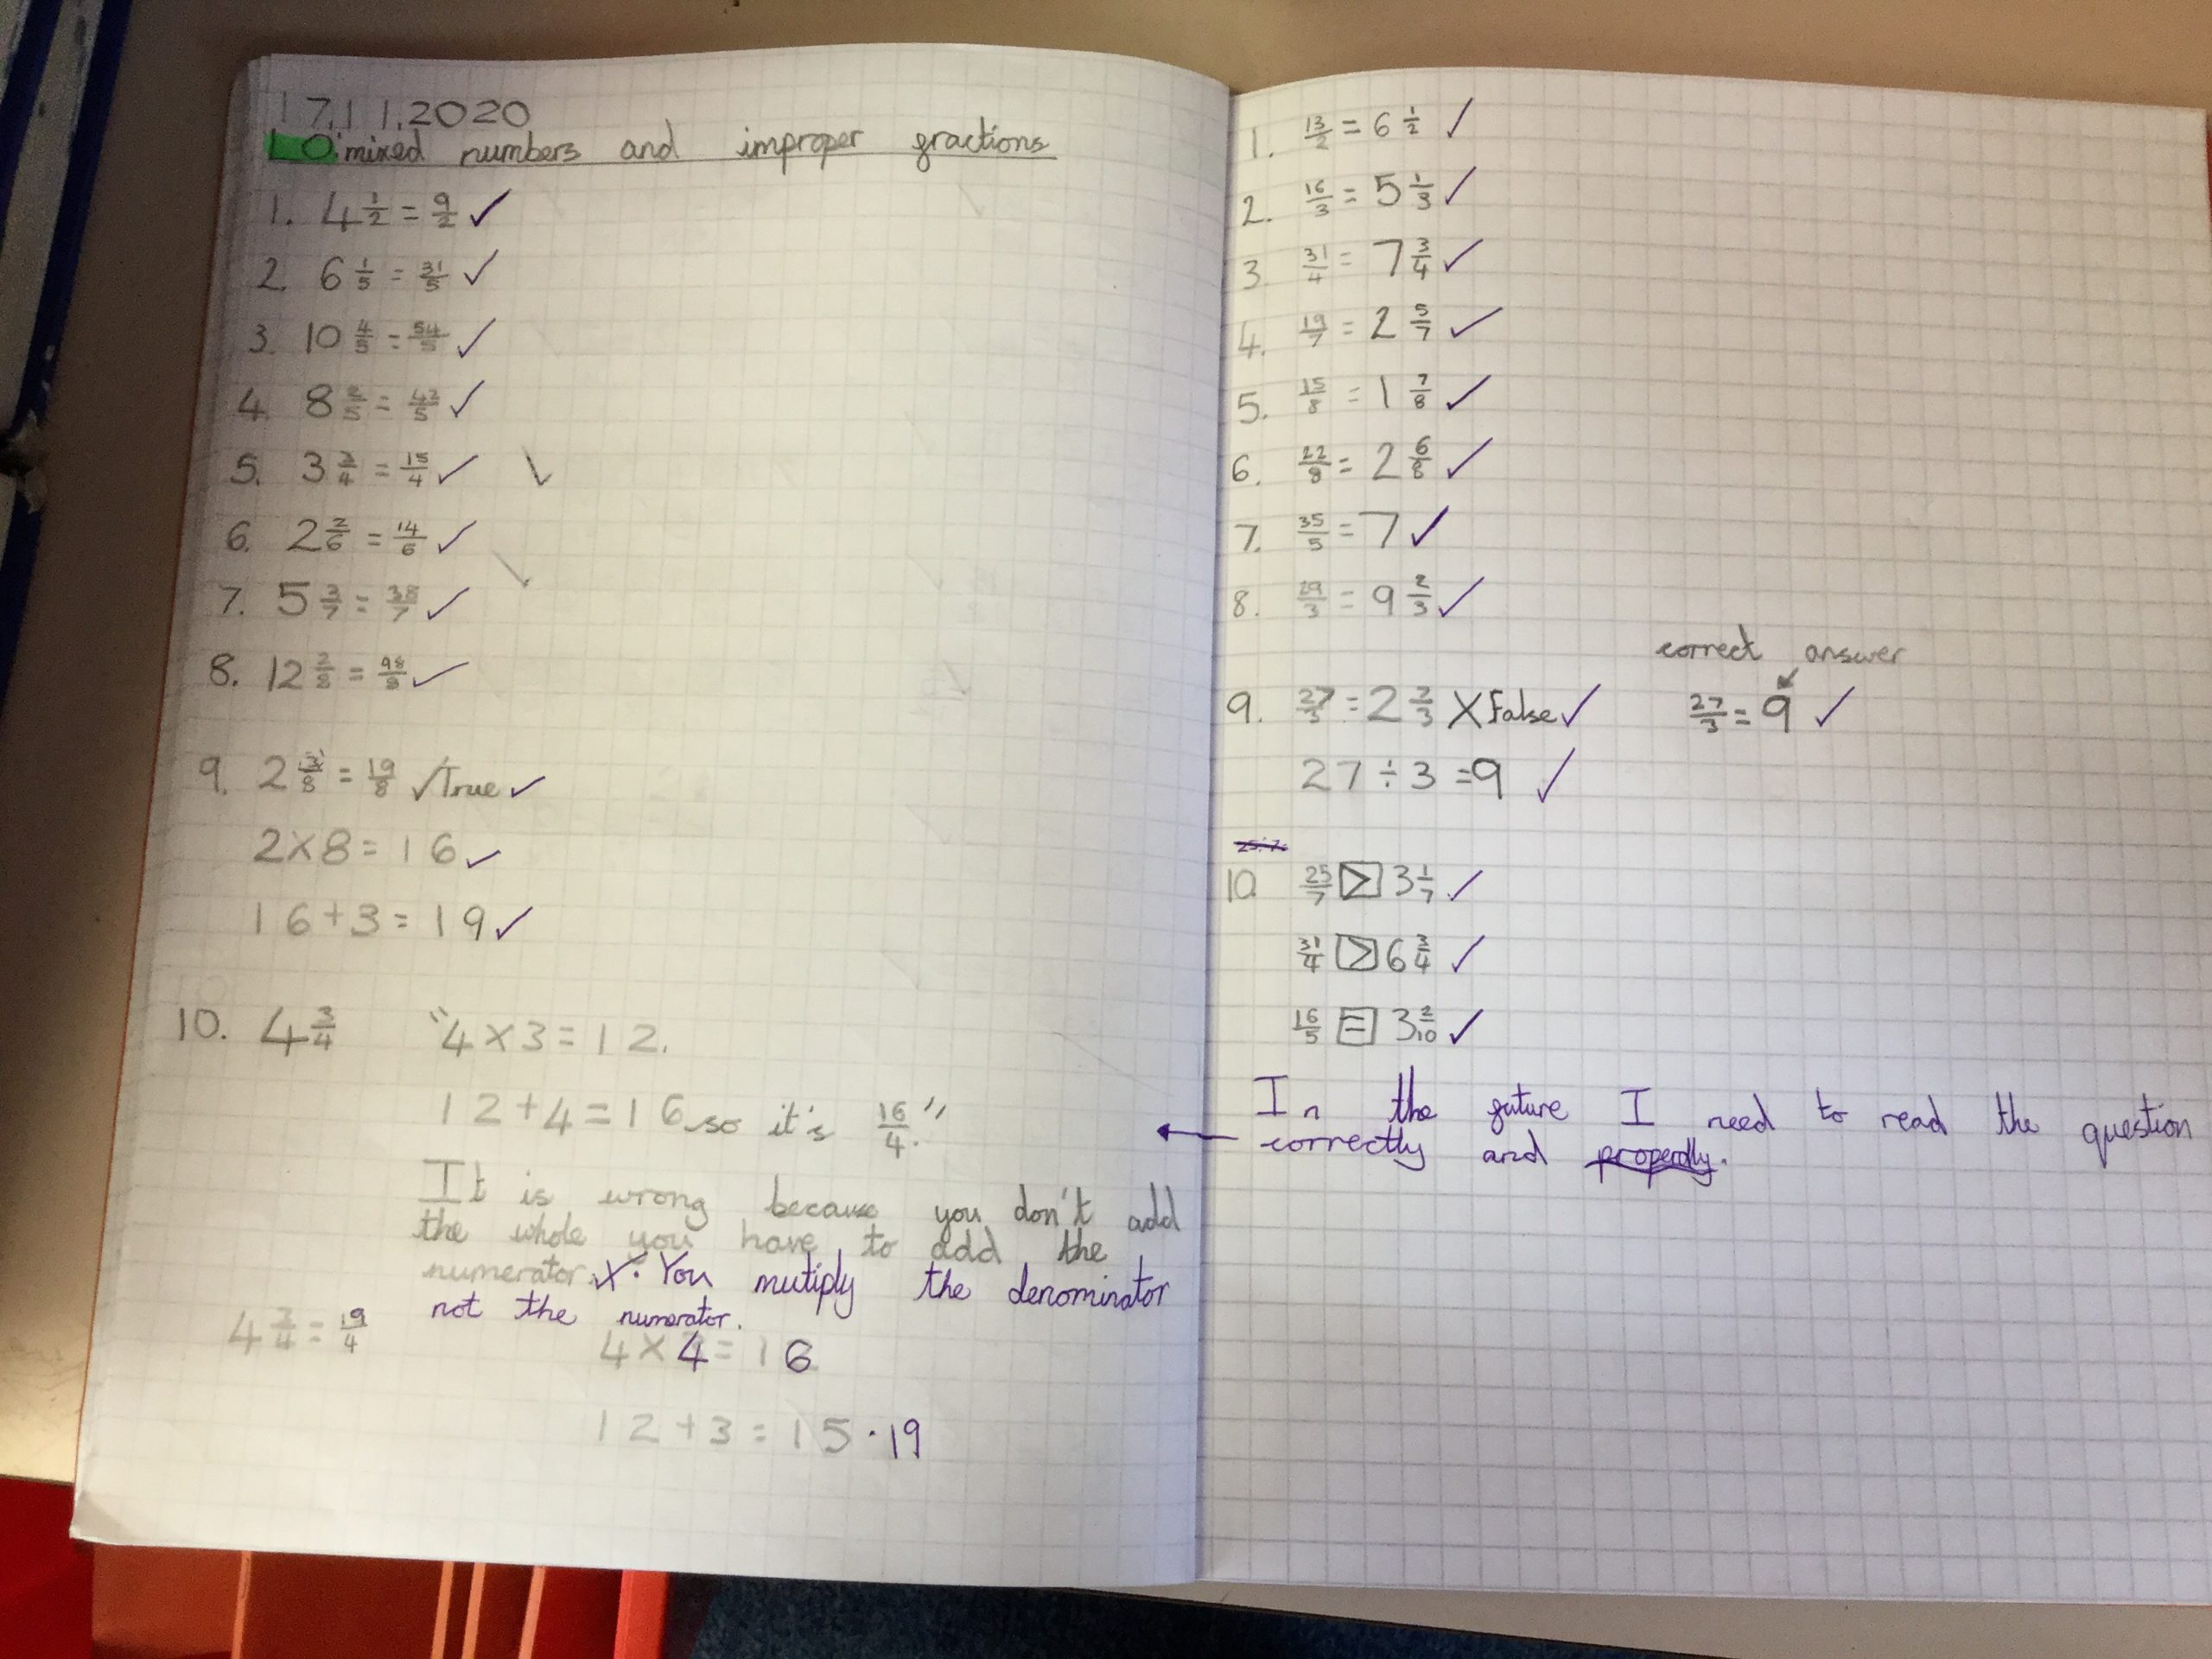 17.11.2020
LO: mixed numbers and improper fractions
1. 4 1/2 = 9/2 ✓
2. 6 1/5 = 31/5 ✓
3. 10 4/5 = 54/5 ✓
4. 8 2/5 = 42/5 ✓
5. 3 3/4 = 15/4 ✓
6. 2 2/6 = 14/6 ✓
7. 5 3/7 = 38/7 ✓
8. 12 2/8 = 98/8 ✓
9. 2 3/8 = 19/8 ✓ True ✓
2 × 8 = 16 ✓
16 + 3 = 19 ✓
10. 4 3/4 "4 × 3 = 12.
12 + 4 = 16 so it's 16/4."
It is wrong because you don't add
the whole you have to add the
numerator. X. You mutiply the denominator
not the numerator.
4 3/4 = 19/4
4 × 4 = 16
12 + 3 = 15 . 19
1. 13/2 = 6 1/2 ✓
2. 16/3 = 5 1/3 ✓
3. 31/4 = 7 3/4 ✓
4. 19/7 = 2 5/7 ✓
5. 15/8 = 1 7/8 ✓
6. 22/8 = 2 6/8 ✓
7. 35/5 = 7 ✓
8. 29/3 = 9 2/3 ✓
correct answer
9. 27/3 = 2 2/3 X False ✓ 27/3 = 9 ✓
27 ÷ 3 = 9 ✓
10. 25/7 > 3 1/7 ✓
31/4 > 6 3/4 ✓
16/5 = 3 2/10 ✓
In the future I need to read the question
correctly and properdly.